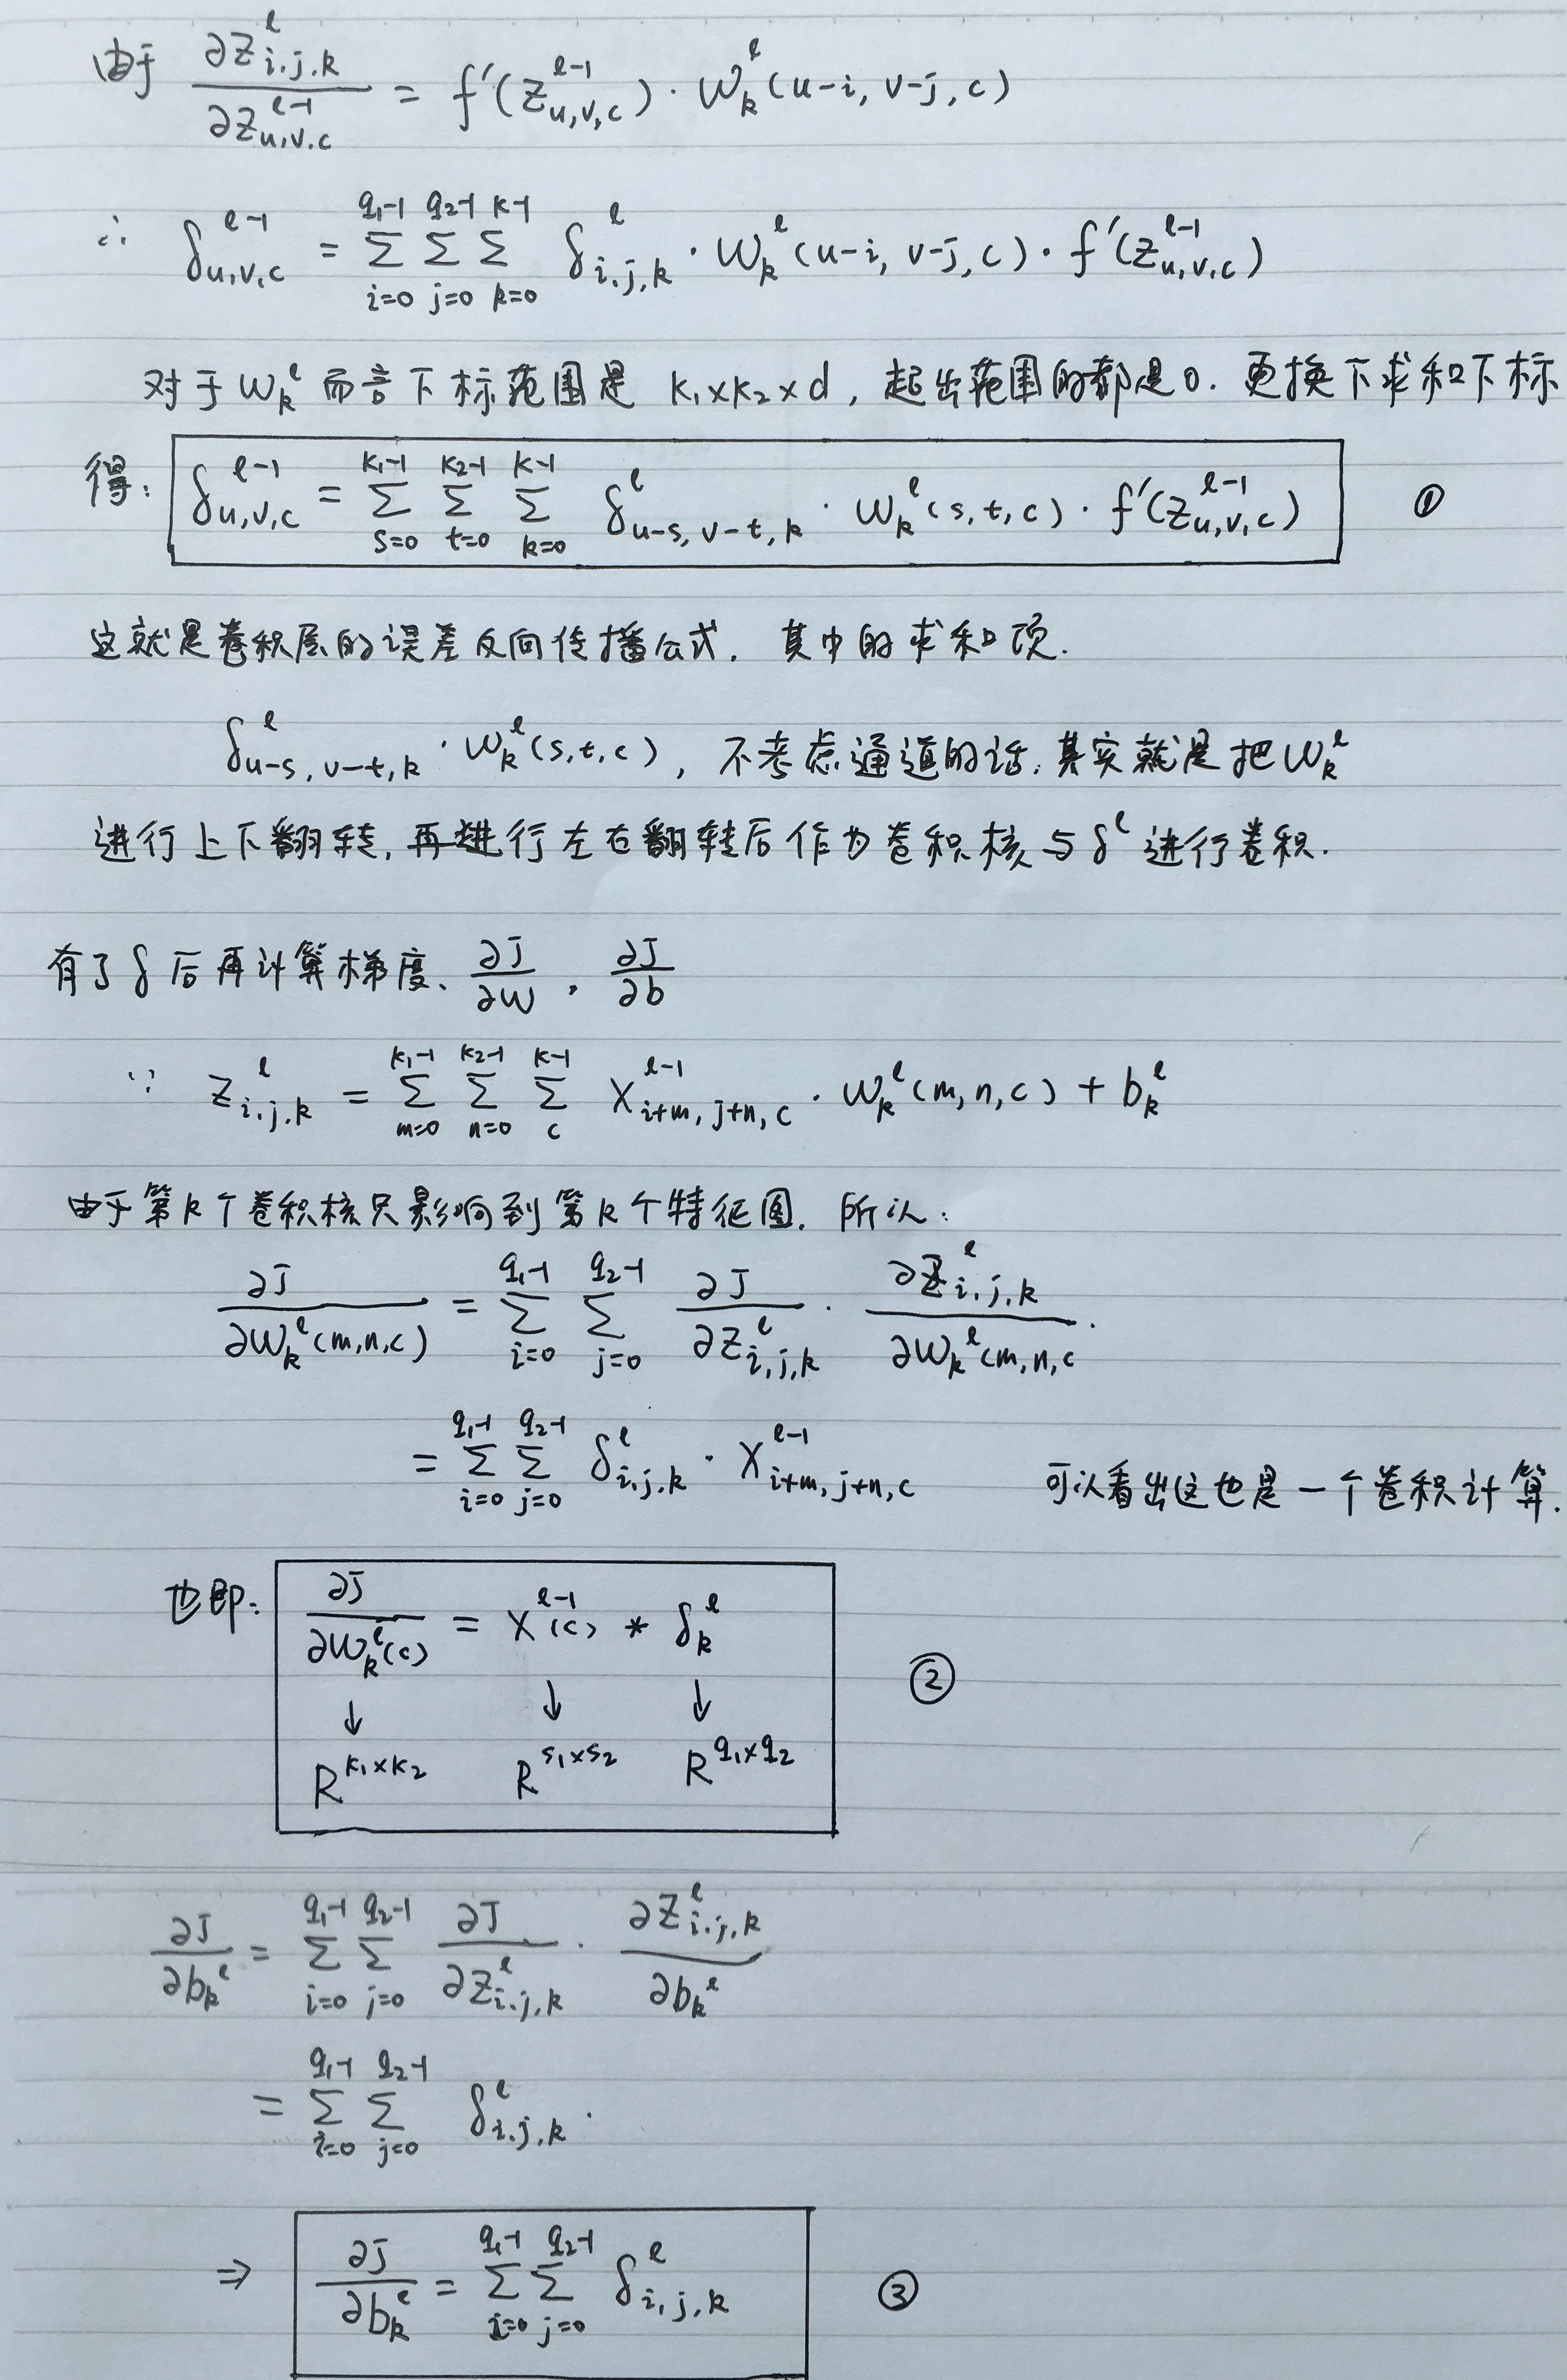 由于 ∂Z^l_{i,j,k} / ∂Z^{l-1}_{u,v,c} = f′(Z^{l-1}_{u,v,c}) · W^l_k(u-i, v-j, c)
∴ δ^{l-1}_{u,v,c} = Σ_{i=0}^{q₁-1} Σ_{j=0}^{q₂-1} Σ_{k=0}^{K-1} δ^l_{i,j,k} · W^l_k(u-i, v-j, c) · f′(Z^{l-1}_{u,v,c})
对于 W^l_k 而言下标范围是 K₁×K₂×d, 超出范围的都是0. 更换下求和下标
得: δ^{l-1}_{u,v,c} = Σ_{s=0}^{K₁-1} Σ_{t=0}^{K₂-1} Σ_{k=0}^{K-1} δ^l_{u-s, v-t, k} · W^l_k(s,t,c) · f′(Z^{l-1}_{u,v,c}) ①
这就是卷积层的误差反向传播公式. 其中的求和项.
δ^l_{u-s, v-t, k} · W^l_k(s,t,c), 不考虑通道的话, 其实就是把 W^l_k
进行上下翻转, 再进行左右翻转后作为卷积核与 δ^l 进行卷积.
有了 δ 后再计算梯度、∂J/∂W , ∂J/∂b
∵ Z^l_{i,j,k} = Σ_{m=0}^{K₁-1} Σ_{n=0}^{K₂-1} Σ_{c}^{K-1} X^{l-1}_{i+m, j+n, c} · W^l_k(m,n,c) + b^l_k
由于第k个卷积核只影响到第k个特征图. 所以:
∂J / ∂W^l_k(m,n,c) = Σ_{i=0}^{q₁-1} Σ_{j=0}^{q₂-1} ∂J / ∂Z^l_{i,j,k} · ∂Z^l_{i,j,k} / ∂W^l_k(m,n,c .
= Σ_{i=0}^{q₁-1} Σ_{j=0}^{q₂-1} δ^l_{i,j,k} · X^{l-1}_{i+m, j+n, c} 可以看出这也是一个卷积计算.
也即: ∂J / ∂W^l_k(c) = X^{l-1}(c) * δ^l_k ②
↓ ↓ ↓
R^{K₁×K₂} R^{s₁×s₂} R^{q₁×q₂}
∂J / ∂b^l_k = Σ_{i=0}^{q₁-1} Σ_{j=0}^{q₂-1} ∂J / ∂Z^l_{i,j,k} · ∂Z^l_{i,j,k} / ∂b^l_k
= Σ_{i=0}^{q₁-1} Σ_{j=0}^{q₂-1} δ^l_{i,j,k} .
⇒ ∂J / ∂b^l_k = Σ_{i=0}^{q₁-1} Σ_{j=0}^{q₂-1} δ^l_{i,j,k} ③